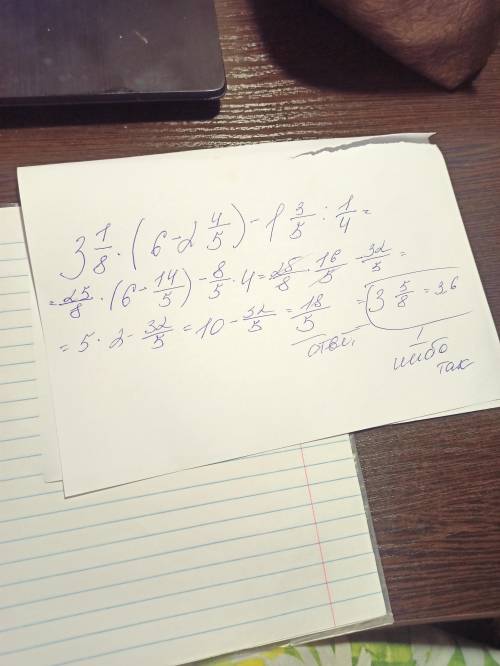 3 1/8 · (6 - 2 4/5) - 1 3/5 : 1/4 =
= 25/8 · (6 - 14/5) - 8/5 · 4 = 25/8 · 16/5 - 32/5 =
= 5 · 2 - 32/5 = 10 - 32/5 = 18/5 = 3 5/8 = 3,6
ответ,
либо
так